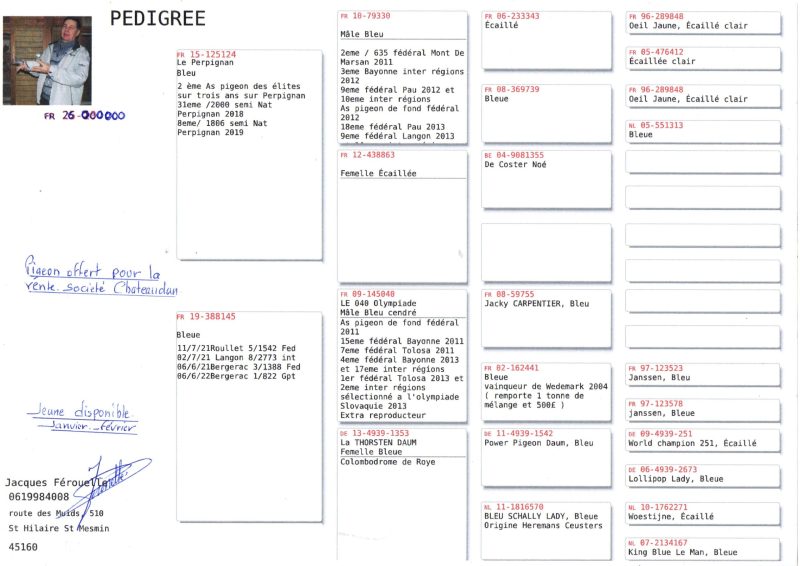 PEDIGREE
FR 26-000000
Pigeon offert pour la
vente. société Chateaudan
Jeune disponible.
Janvier-février
Jacques Férouelle
0619984008
route des Muids, 510
St Hilaire St Mesmin
45160
FR 15-125124
Le Perpignan
Bleu
2 ème As pigeon des élites
sur trois ans sur Perpignan
31eme /2000 semi Nat
Perpignan 2018
8eme/ 1806 semi Nat
Perpignan 2019
FR 19-388145
Bleue
11/7/21Roullet 5/1542 Fed
02/7/21 Langon 8/2773 int
06/6/21Bergerac 3/1388 Fed
06/6/22Bergerac 1/822 Gpt
FR 10-79330
Mâle Bleu
2eme / 635 fédéral Mont De
Marsan 2011
3eme Bayonne inter régions
2012
9eme fédéral Pau 2012 et
10eme inter régions
As pigeon de fond fédéral
2012
18eme fédéral Pau 2013
9eme fédéral Langon 2013
FR 12-438863
Femelle Écaillée
FR 09-145040
LE 040 Olympiade
Mâle Bleu cendré
As pigeon de fond fédéral
2011
15eme fédéral Bayonne 2011
7eme fédéral Tolosa 2011
4eme fédéral Bayonne 2013
et 17eme inter régions
1er fédéral Tolosa 2013 et
2eme inter régions
sélectionné a l'olympiade
Slovaquie 2013
Extra reproducteur
DE 13-4939-1353
La THORSTEN DAUM
Femelle Bleue
Colombodrome de Roye
FR 06-233343
Écaillé
FR 08-369739
Bleue
BE 04-9081355
De Coster Noé
FR 08-59755
Jacky CARPENTIER, Bleu
FR 02-162441
Bleue
vainqueur de Wedemark 2004
( remporte 1 tonne de
mélange et 500£ )
DE 11-4939-1542
Power Pigeon Daum, Bleu
NL 11-1816570
BLEU SCHALLY LADY, Bleue
Origine Heremans Ceusters
FR 96-289848
Oeil Jaune, Écaillé clair
FR 05-476412
Écaillée clair
FR 96-289848
Oeil Jaune, Écaillé clair
NL 05-551313
Bleue
FR 97-123523
Janssen, Bleu
FR 97-123578
janssen, Bleue
DE 09-4939-251
World champion 251, Écaillé
DE 06-4939-2673
Lollipop Lady, Bleue
NL 10-1762271
Woestijne, Écaillé
NL 07-2134167
King Blue Le Man, Bleue